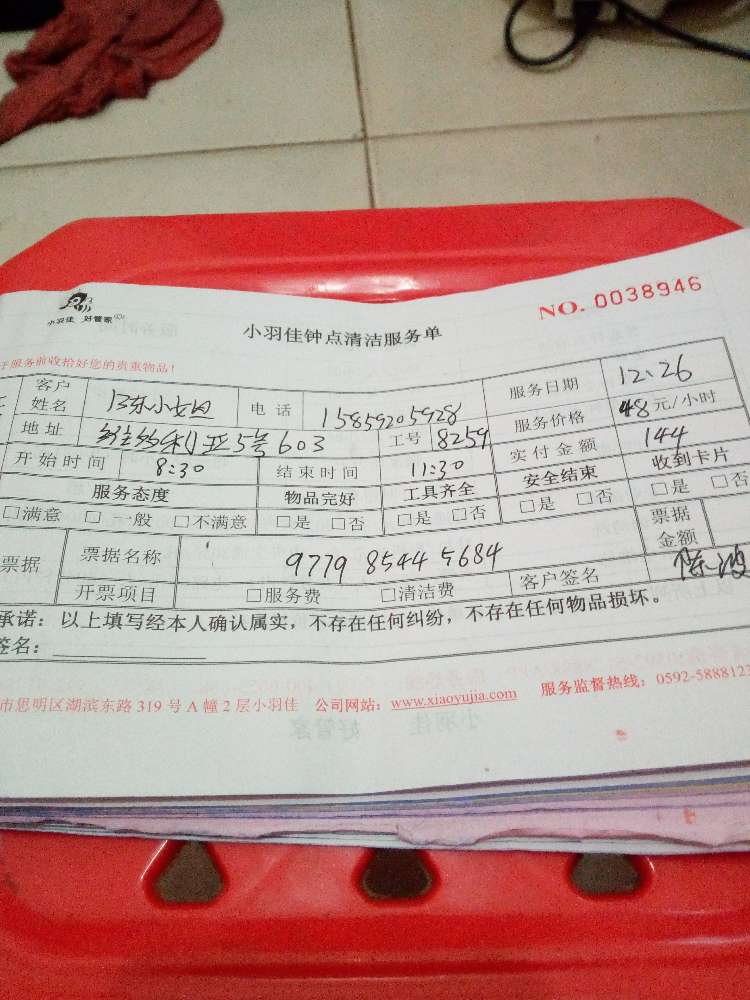 小羽佳 好管家
小羽佳钟点清洁服务单
NO. 0038946
服务前收拾好您的贵重物品！
客户姓名 电话 15859205928 服务日期 12.26
地址 利亚5号603 工号 8259 服务价格 48元/小时
开始时间 8:30 结束时间 11:30 实付金额 144
服务态度 物品完好 工具齐全 安全结束 收到卡片
□满意 □一般 □不满意 □是 □否 □是 □否 □是 □否 □是 □否
票据 票据名称 9779 8544 5684 票据金额
开票项目 □服务费 □清洁费 客户签名 陈波
承诺：以上填写经本人确认属实，不存在任何纠纷，不存在任何物品损坏。
签名：
市思明区湖滨东路319号A幢2层小羽佳 公司网站：www.xiaoyujia.com 服务监督热线：0592-5888123